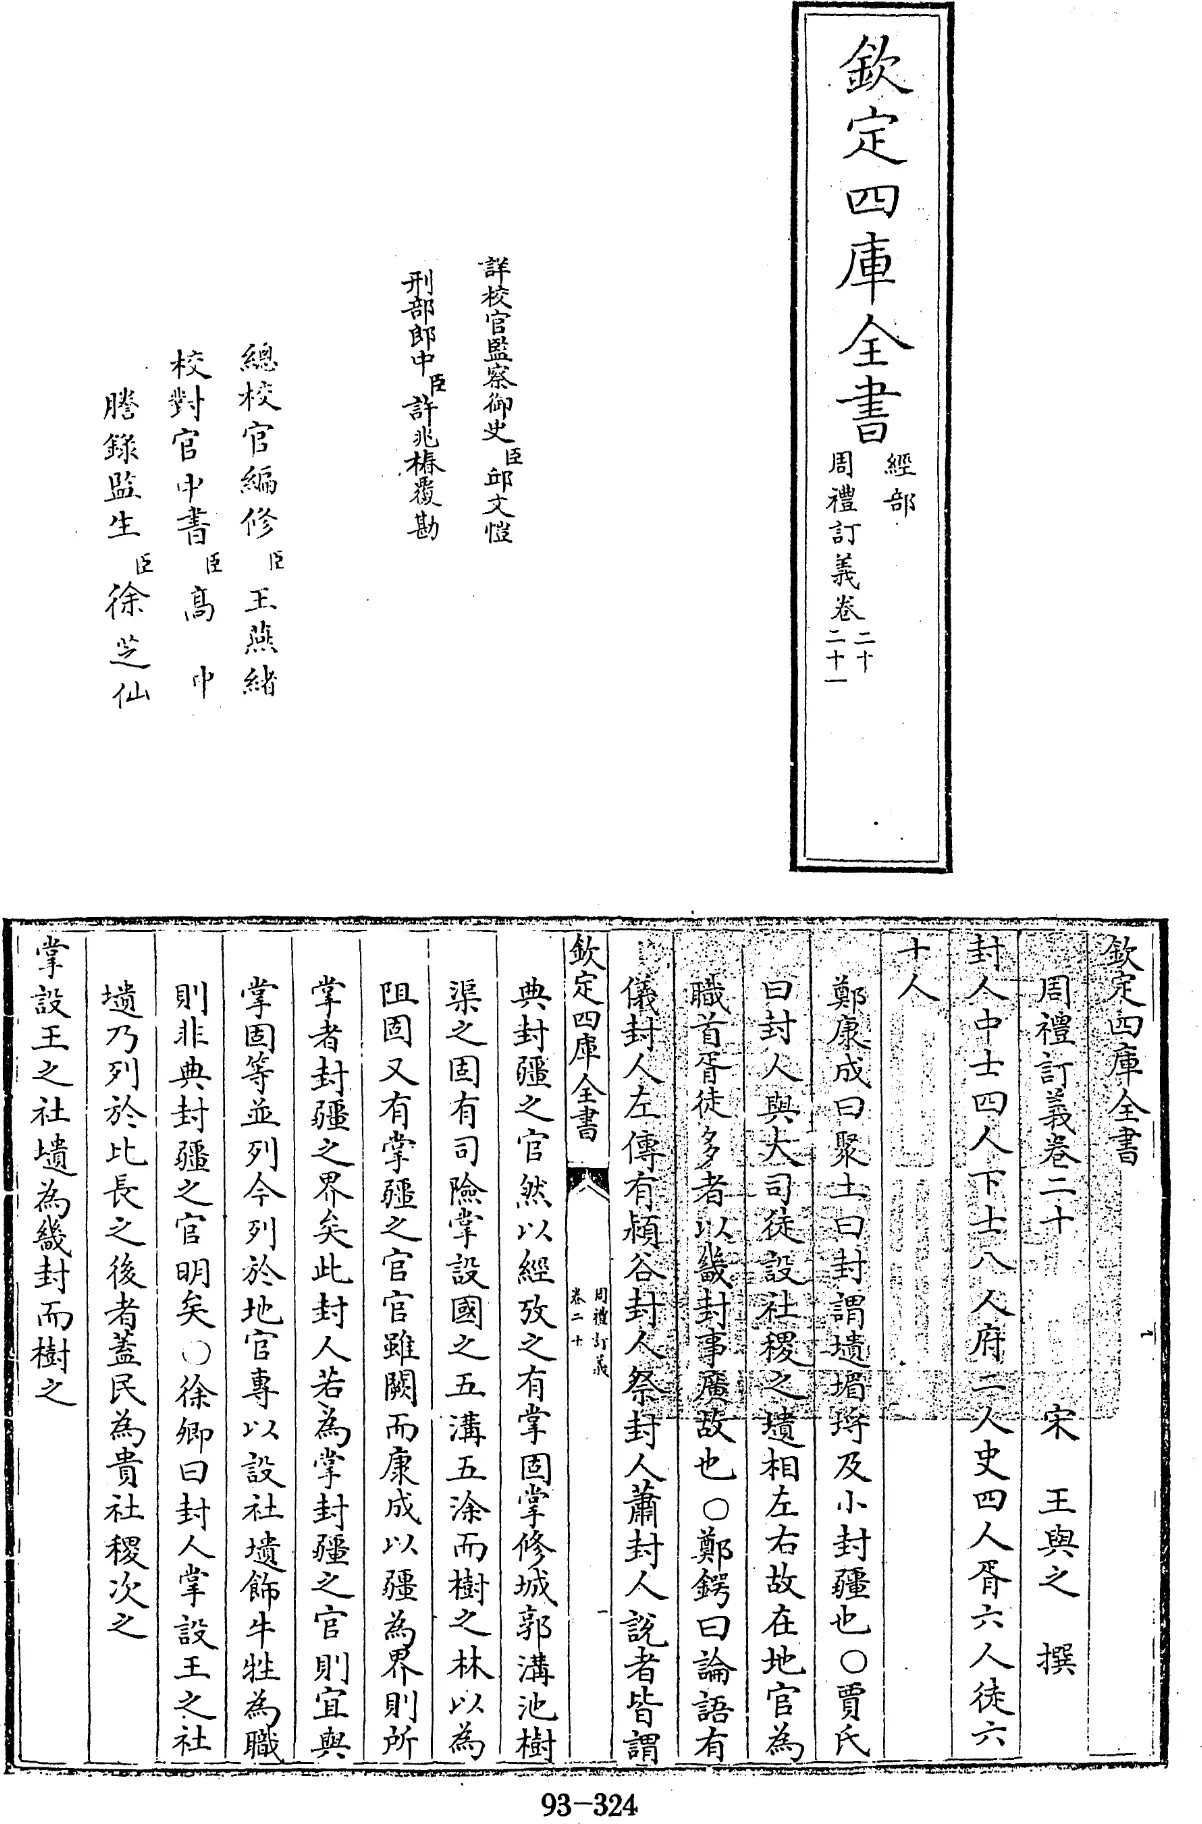 欽定四庫全書
經部
周禮訂義卷二十
二十一
詳校官監察御史臣邱文愷
刑部郎中臣許兆椿覆勘
總校官編修臣王燕緒
校對官中書臣高中
謄錄監生臣徐芝仙
欽定四庫全書
周禮訂義卷二十 宋 王與之 撰
封人中士四人下士八人府二人史四人胥六人徒六
十人
鄭康成曰聚土曰封謂壝堳埒及小封疆也○賈氏
曰封人與大司徒設社稷之壝相左右故在地官為
職首胥徒多者以畿封事廣故也○鄭鍔曰論語有
儀封人左傳有潁谷封人祭封人蕭封人說者皆謂
欽定四庫全書
周禮訂義
卷二十
一
典封疆之官然以經攷之有掌固掌修城郭溝池樹
渠之固有司險掌設國之五溝五涂而樹之林以為
阻固又有掌疆之官官雖闕而康成以疆為界則所
掌者封疆之界矣此封人若為掌封疆之官則宜與
掌固等並列今列於地官專以設社壝飾牛牲為職
則非典封疆之官明矣○徐卿曰封人掌設王之社
壝乃列於比長之後者蓋民為貴社稷次之
掌設王之社壝為畿封而樹之
93-324